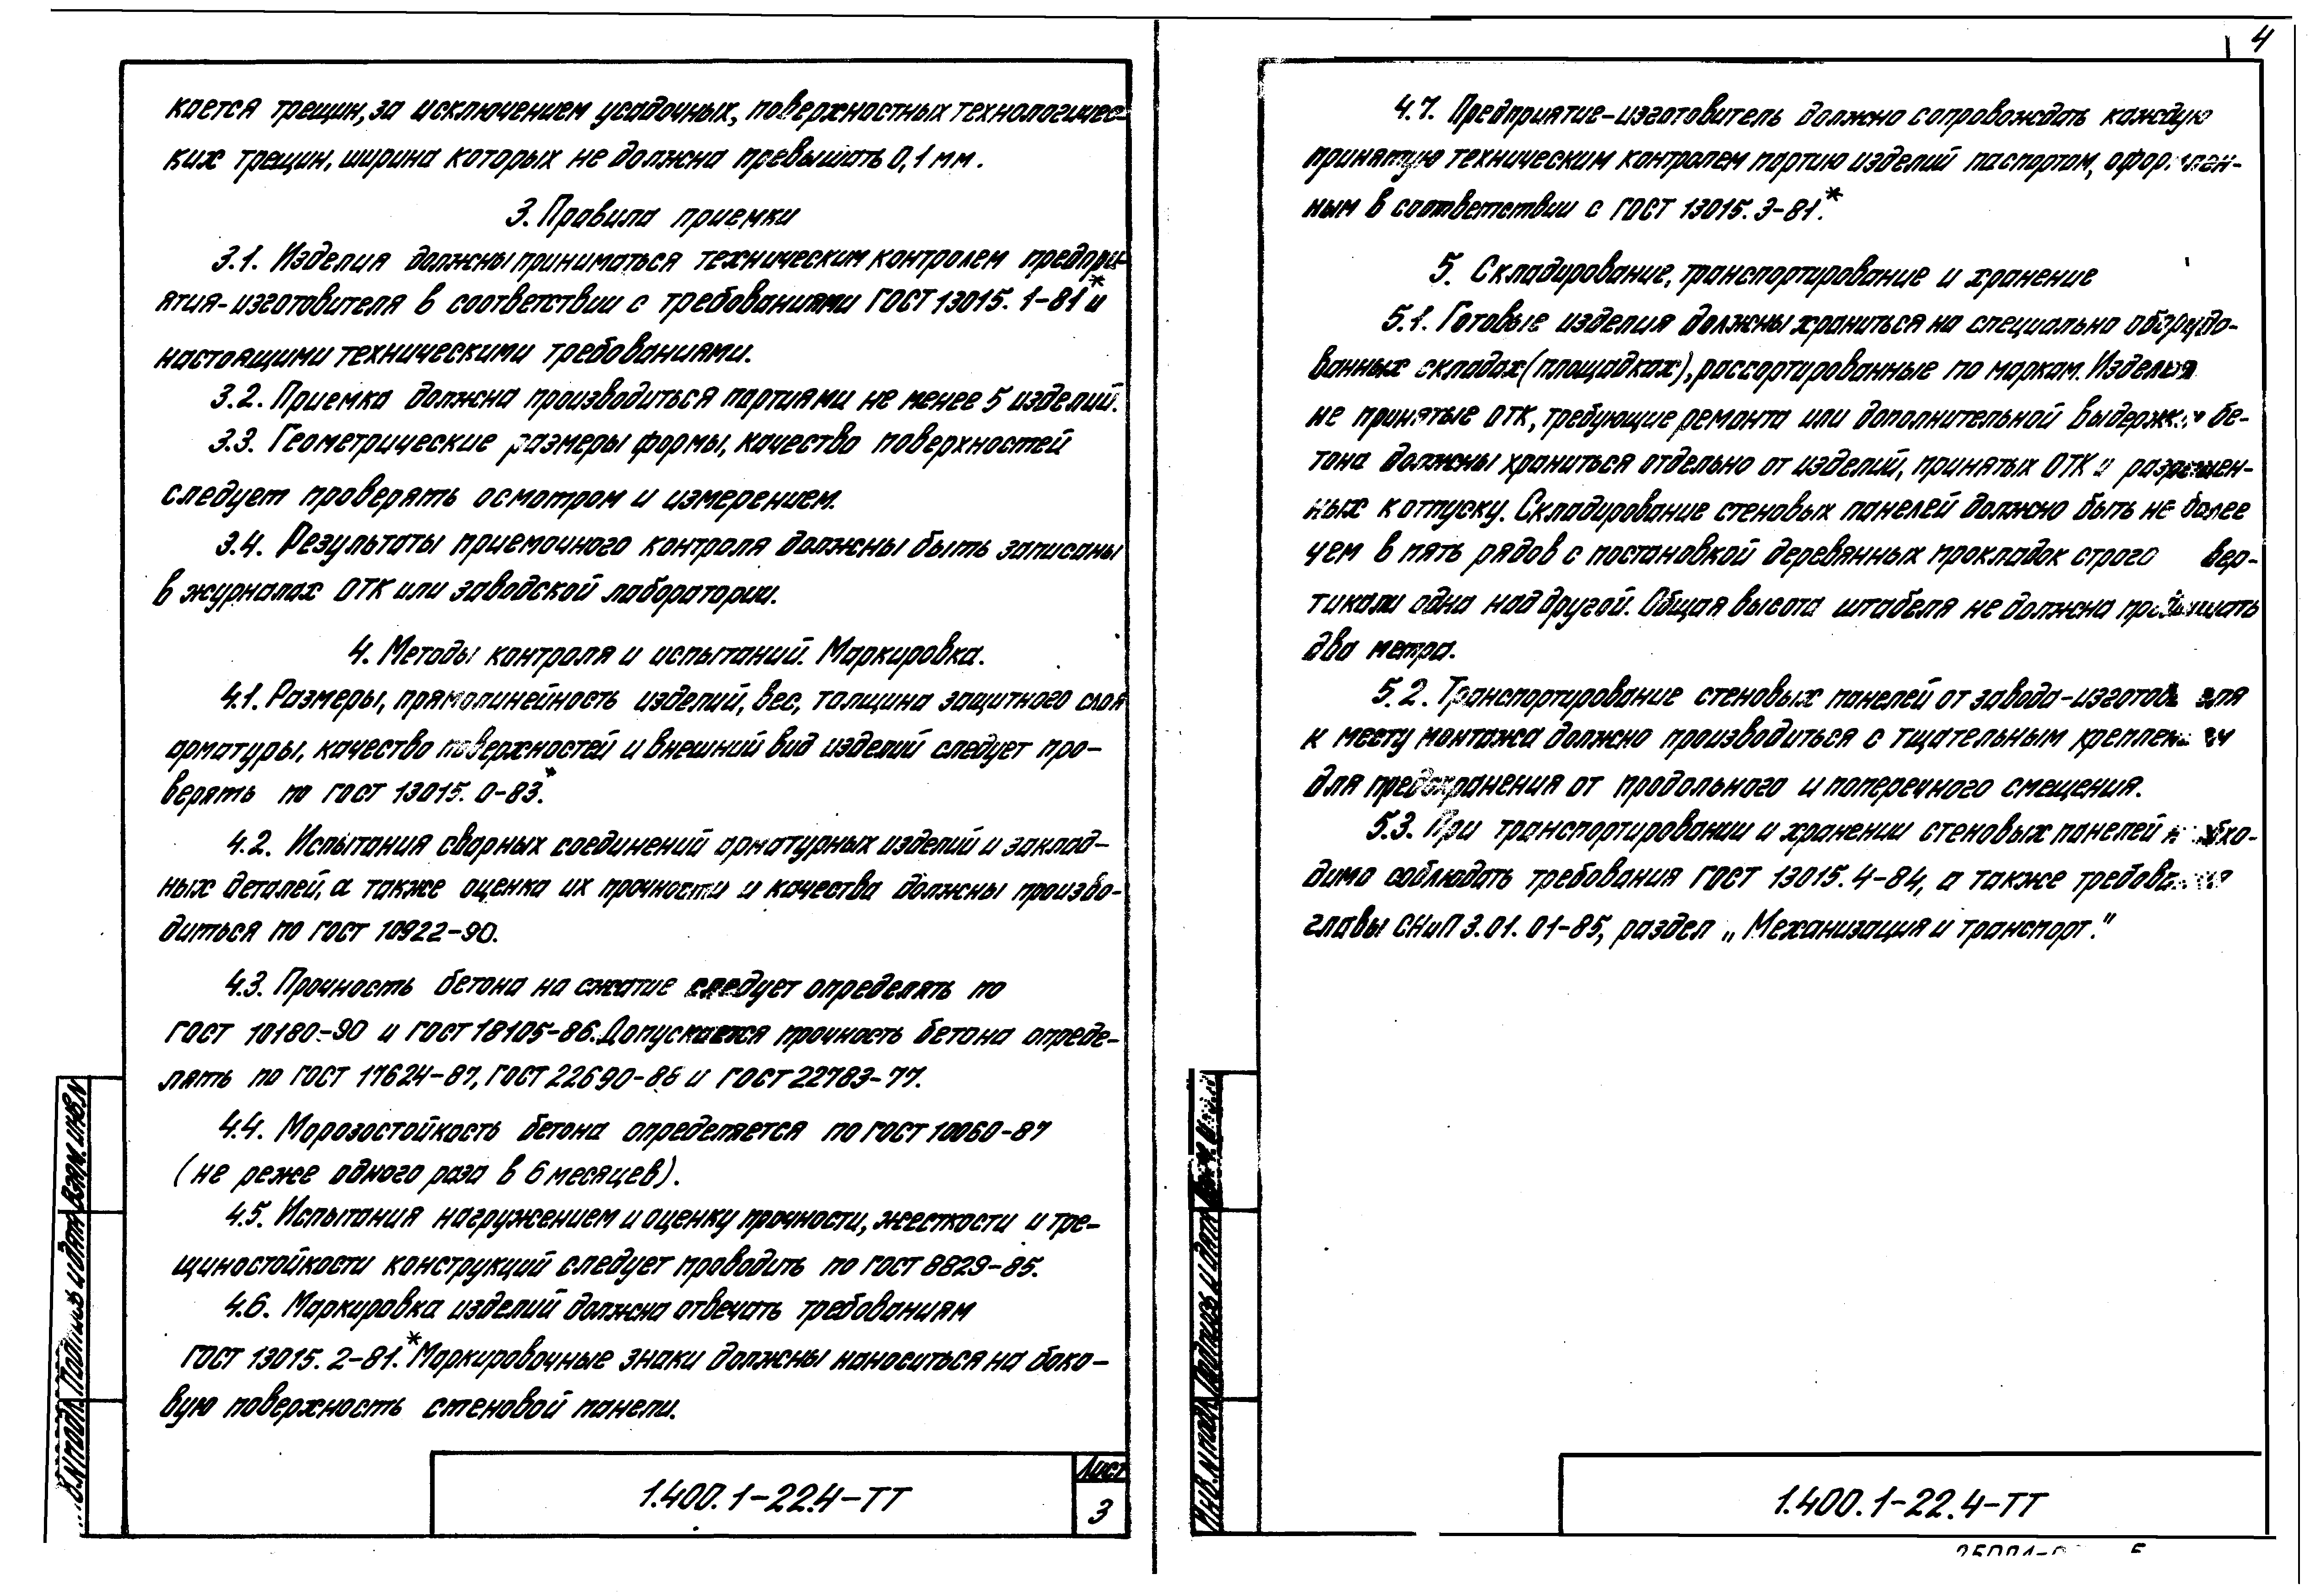 кается трещин, за исключением усадочных, поверхностных технологичес-
ких трещин, ширина которых не должна превышать 0,1 мм.
3. Правила приемки
3.1. Изделия должны приниматься техническим контролем предпри-
ятия-изготовителя в соответствии с требованиями ГОСТ 13015.1-81* и
настоящими техническими требованиями.
3.2. Приемка должна производиться партиями не менее 5 изделий.
3.3. Геометрические размеры формы, качество поверхностей
следует проверять осмотром и измерением.
3.4. Результаты приемочного контроля должны быть записаны
в журналах ОТК или заводской лаборатории.
4. Методы контроля и испытаний. Маркировка.
4.1. Размеры, прямолинейность изделий, вес, толщина защитного слоя
арматуры, качество поверхностей и внешний вид изделий следует про-
верять по ГОСТ 13015.0-83.*
4.2. Испытания сварных соединений арматурных изделий и заклад-
ных деталей, а также оценка их прочности и качества должны произво-
диться по ГОСТ 10922-90.
4.3. Прочность бетона на сжатие следует определять по
ГОСТ 10180-90 и ГОСТ 18105-86. Допускается прочность бетона опреде-
лять по ГОСТ 17624-87, ГОСТ 22690-88 и ГОСТ 22783-77.
4.4. Морозостойкость бетона определяется по ГОСТ 10060-87
(не реже одного раза в 6 месяцев).
4.5. Испытания нагружением и оценку прочности, жесткости и тре-
щиностойкости конструкций следует проводить по ГОСТ 8829-85.
4.6. Маркировка изделий должна отвечать требованиям
ГОСТ 13015.2-81.* Маркировочные знаки должны наноситься на боко-
вую поверхность стеновой панели.
Подпись и дата Взам. инв. N
1.400.1-22.4-ТТ
Лист
3
4
4.7. Предприятие-изготовитель должно сопровождать каждую
принятую техническим контролем партию изделий паспортом, оформлен-
ным в соответствии с ГОСТ 13015.3-81.*
5. Складирование, транспортирование и хранение
5.1. Готовые изделия должны храниться на специально оборудо-
ванных складах (площадках), рассортированные по маркам. Изделия
не принятые ОТК, требующие ремонта или дополнительной выдержки бе-
тона должны храниться отдельно от изделий, принятых ОТК и разрешен-
ных к отпуску. Складирование стеновых панелей должно быть не более
чем в пять рядов с постановкой деревянных прокладок строго вер-
тикали одна над другой. Общая высота штабеля не должна превышать
два метра.
5.2. Транспортирование стеновых панелей от завода-изготовителя
к месту монтажа должно производиться с тщательным креплением
для предохранения от продольного и поперечного смещения.
5.3. При транспортировании и хранении стеновых панелей необхо-
димо соблюдать требования ГОСТ 13015.4-84, а также требования
главы СНиП 3.01.01-85, раздел „Механизация и транспорт."
Инв. N подл. Подпись и дата
1.400.1-22.4-ТТ